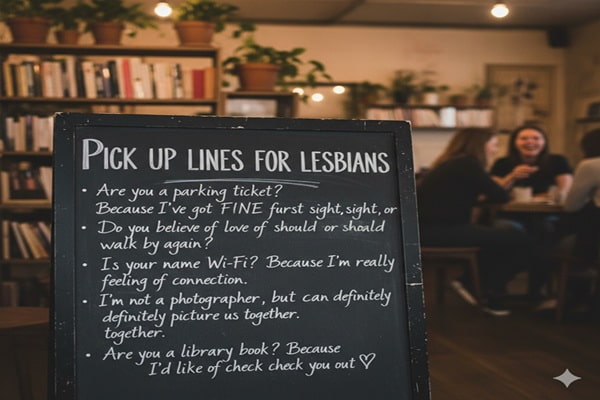 PICK UP LINES FOR LESBIANS
• Are you a parking ticket?
Because I've got FINE furst sight, sight, or
• Do you believe of love of should or shoald
walk by again?
• Is your name Wi-Fi? Because I'm really
feeling of connection.
• I'm not a photographer, but can definitely
definitely picture us together.
together.
• Are you a library book? Because
I'd like of check check you out ♡